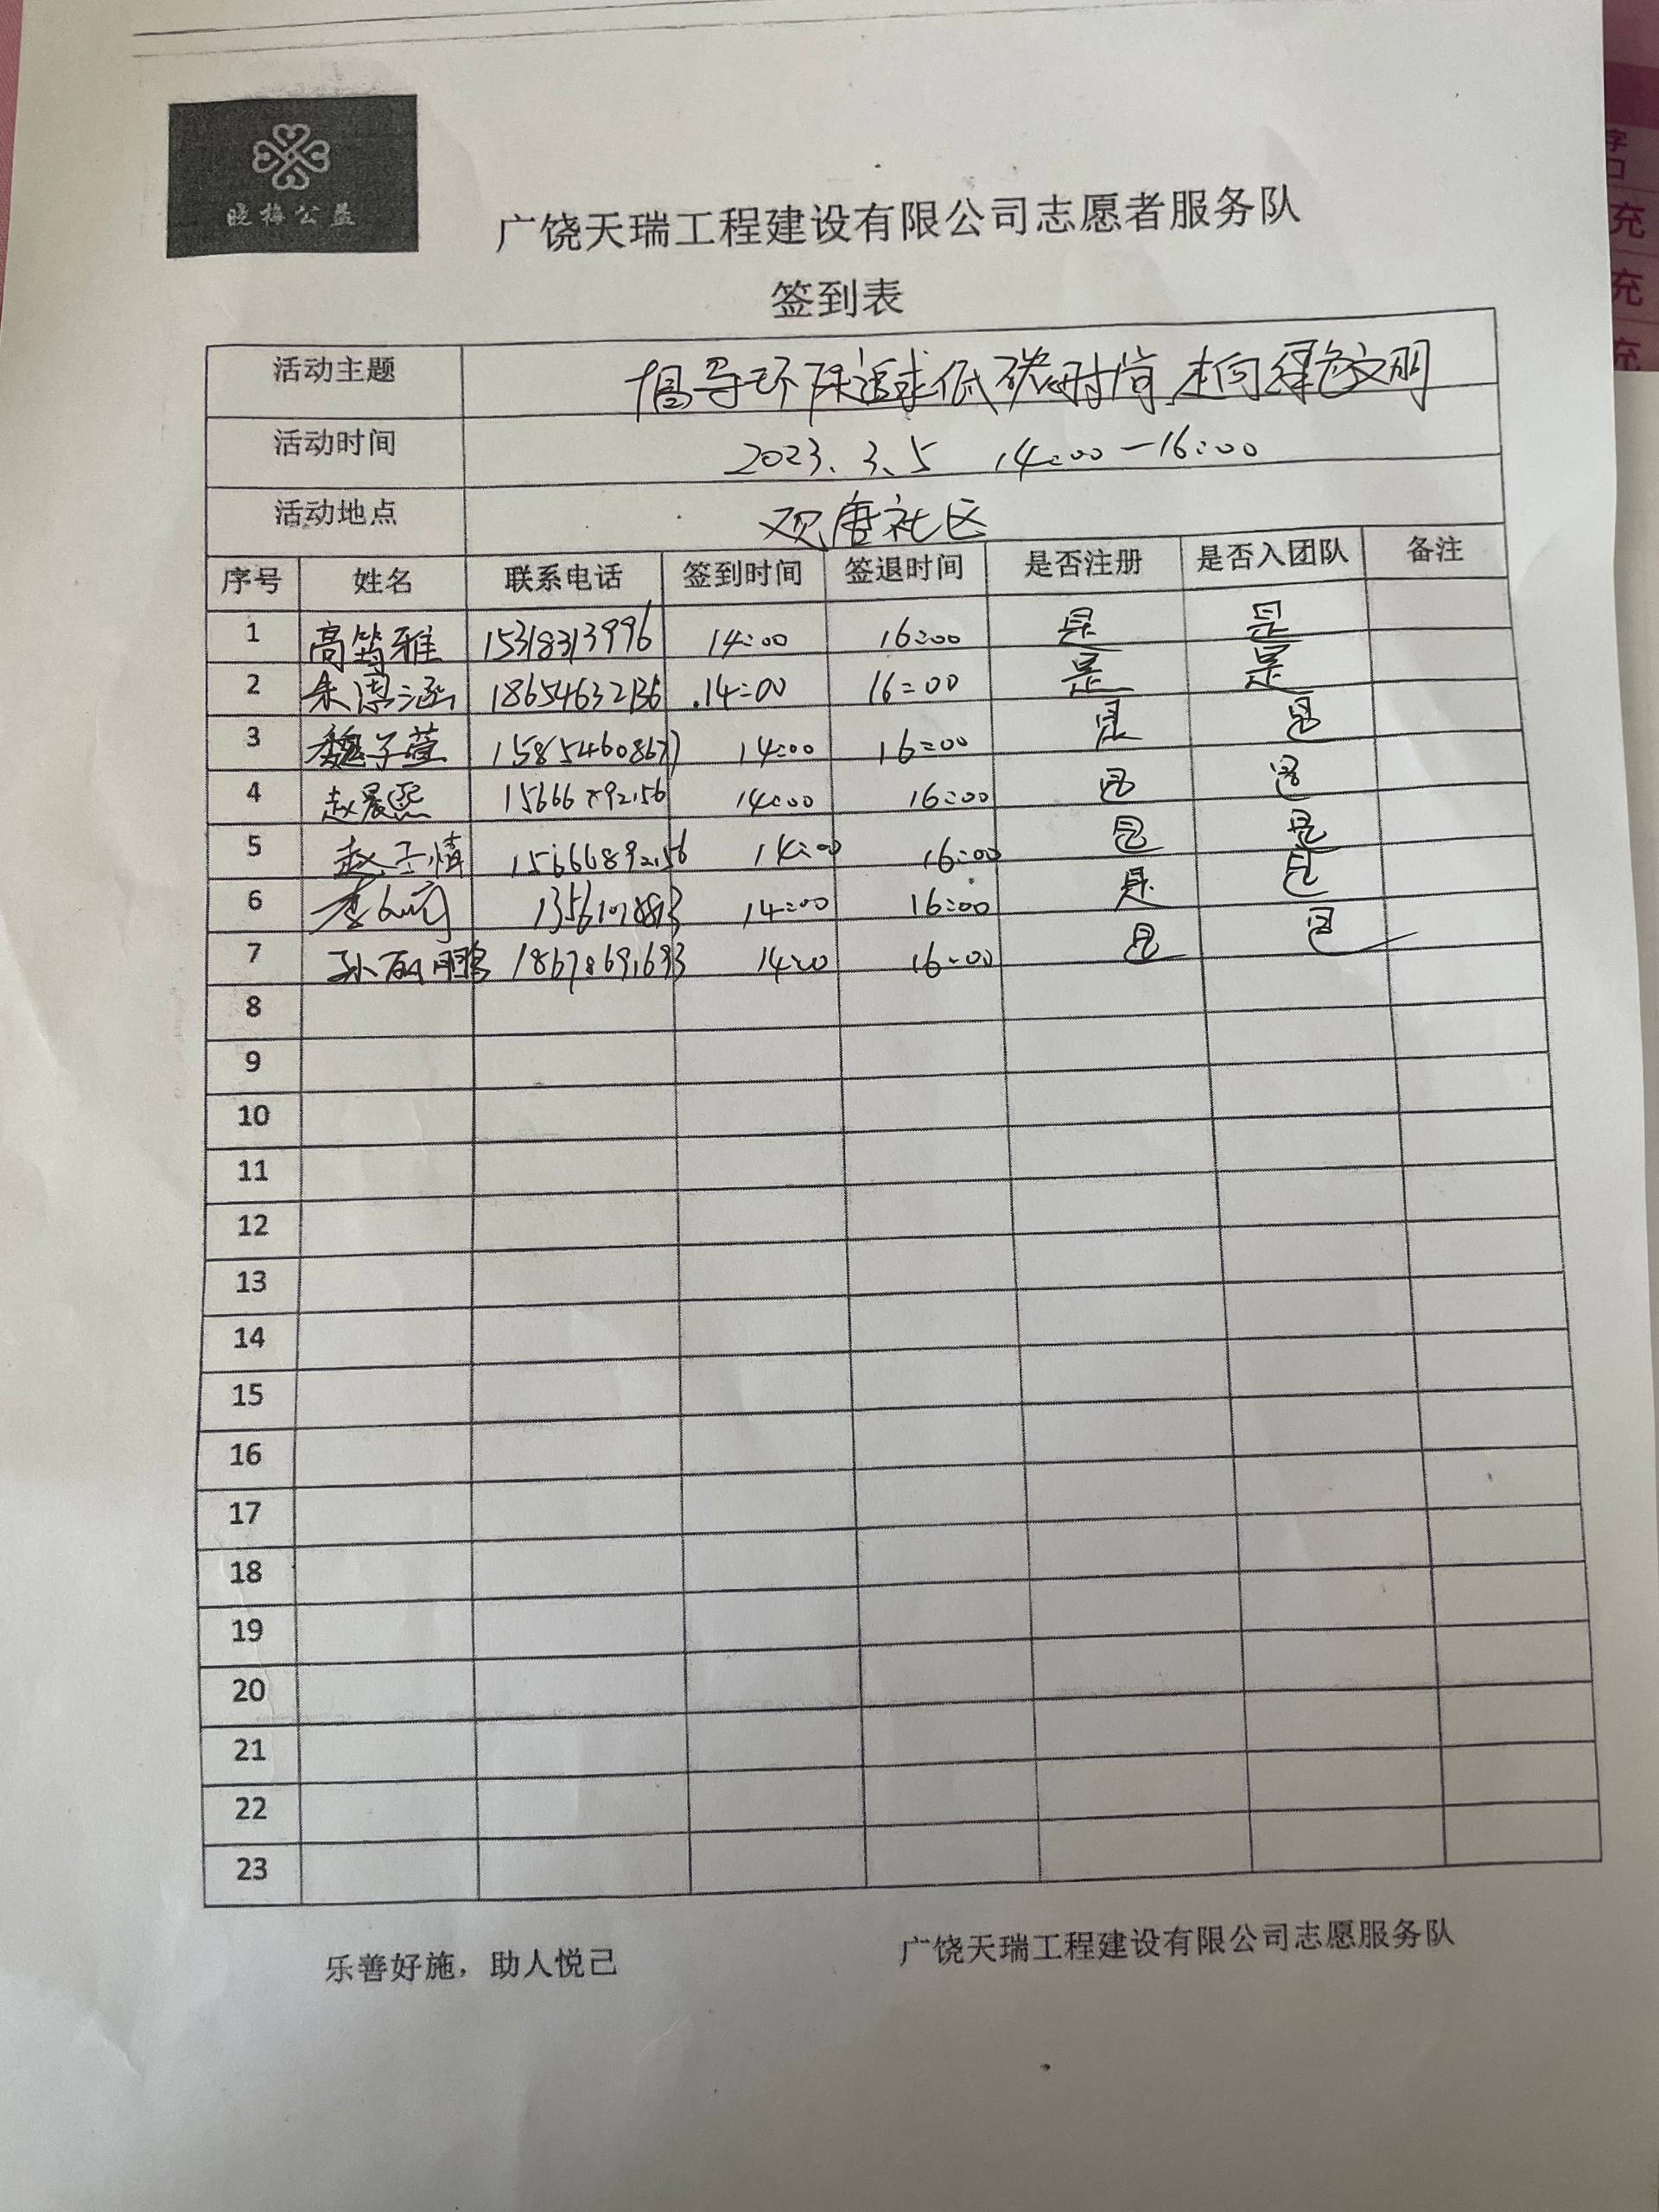 晓梅公益
广饶天瑞工程建设有限公司志愿者服务队
签到表
活动主题 倡导环保追求低碳时尚 走向绿色文明
活动时间 2023.3.5 14:00-16:00
活动地点 观唐社区
序号 姓名 联系电话 签到时间 签退时间 是否注册 是否入团队 备注
1 高筠雅 15318313996 14:00 16:00 是 是
2 朱恩涵 18654632136 14:00 16:00 是 是
3 魏子萱 15854608677 14:00 16:00 是 是
4 赵晨熙 15666892156 14:00 16:00 是 是
5 赵子情 15666892156 14:00 16:00 是 是
6 李 14:00 16:00 是 是
7 孙 鹏 18678691693 14:00 16:00 是 是
8
9
10
11
12
13
14
15
16
17
18
19
20
21
22
23
乐善好施，助人悦己
广饶天瑞工程建设有限公司志愿服务队
字
口
充
充
充